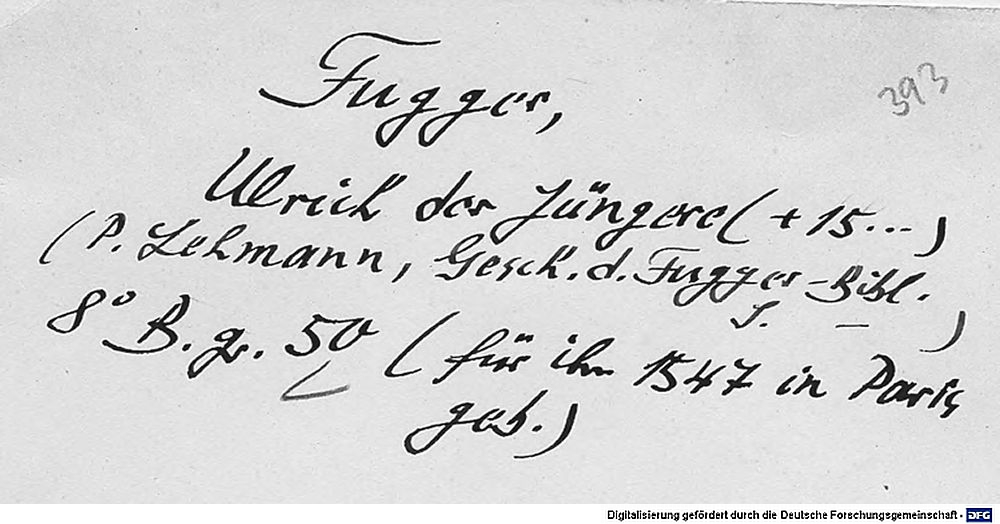 393
Fugger,
Ulrich der Jüngere (+ 15...)
(P. Lehmann, Gesch. d. Fugger-Bibl.
S. — )
8° B. gr. 50 (für ihn 1547 in Paris
geb.)
Digitalisierung gefördert durch die Deutsche Forschungsgemeinschaft - DFG